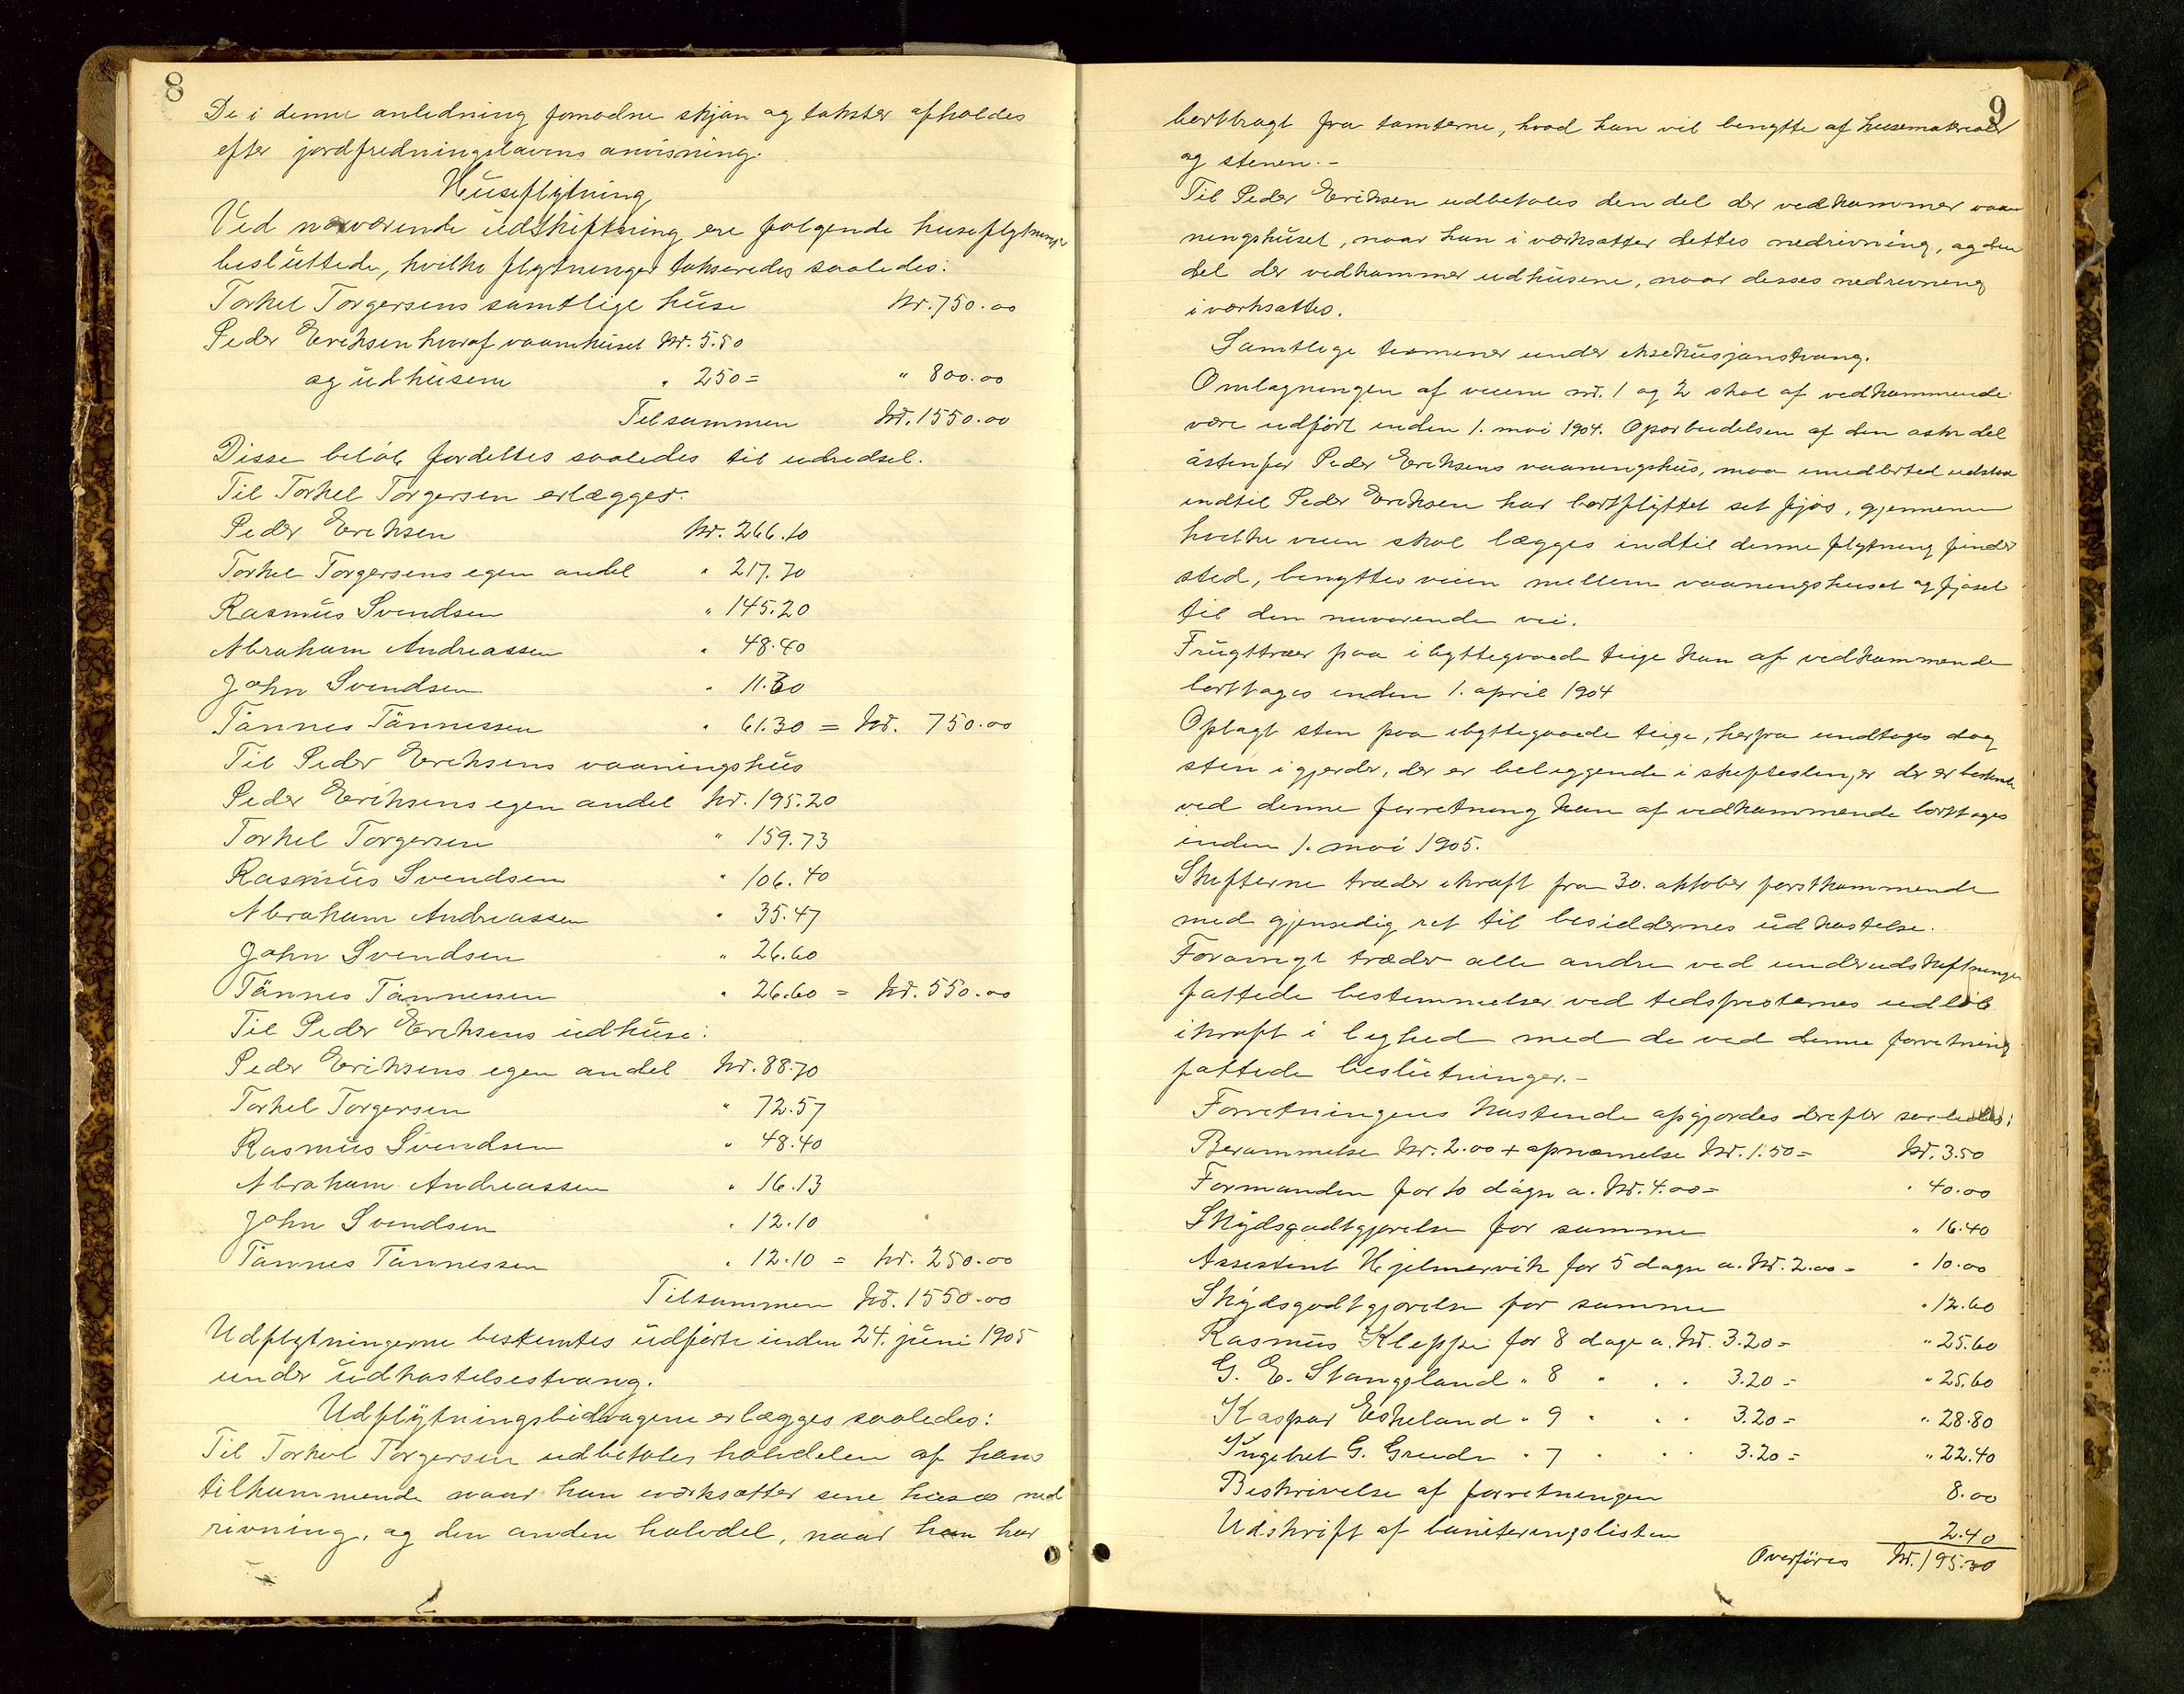 8
De i denne anledning fornødne skjøn og takster afholdes
efter jordfredningslovens anvisning.
Huseflytning
Ved nærværende udskiftning ere følgende huseflytninger
besluttede, hvilke flytninger takseredes saaledes:
Torkel Torgersens samtlige huse kr. 750.00
Peder Eriksen hvoraf vaanhuset kr. 550
og udhusene " 250 = " 800.00
Tilsammen kr. 1550.00
Disse beløb fordeltes saaledes til udredsel.
Til Torkel Torgersen erlægges:
Peder Eriksen kr. 266.10
Torkel Torgersens egen andel " 217.70
Rasmus Svendsen " 145.20
Abraham Andreassen " 48.40
John Svendsen " 11.30
Tønnes Tønnessen " 61.30 = kr. 750.00
Til Peder Eriksens vaaningshus
Peder Eriksens egen andel kr. 195.20
Torkel Torgersen " 159.73
Rasmus Svendsen " 106.40
Abraham Andreassen " 35.47
John Svendsen " 26.60
Tønnes Tønnessen " 26.60 = kr. 550.00
Til Peder Eriksens udhuse:
Peder Eriksens egen andel kr. 88.70
Torkel Torgersen " 72.57
Rasmus Svendsen " 48.40
Abraham Andreassen " 16.13
John Svendsen " 12.10
Tønnes Tønnessen " 12.10 = kr. 250.00
Tilsammen kr. 1550.00
Udflytningerne bestemtes udførte inden 24. juni 1905
under udkastelsestvang.
Udflytningsbidragene erlægges saaledes:
Til Torkel Torgersen udbetales halvdelen af hans
tilkommende naar han iværksætter sine huses ned
rivning, og den anden halvdel, naar han har
9
borttragt fra tomterne, hvad han vil benytte af husematerialer
og stenen. -
Til Peder Eriksen udbetales den del der vedkommer vaa-
ningshuset, naar han i værksætter dettes nedrivning, og den
del der vedkommer udhusene, naar disses nedrivning
iværksættes.
Samtlige terminer under eksekusjonstvang.
Omlægningen af veiene nr. 1 og 2 skal af vedkommende
være udført inden 1. mai 1904. Oparbeidelsen af den østre del
østenfor Peder Eriksens vaaningshus, maa imidlertid udstaa
indtil Peder Eriksen har bortflyttet sit fjøs, gjennem
hvilke veien skal lægges indtil denne flytning finder
sted, benyttes veien mellem vaaningshuset og fjøset
til den nuværende vei.
Frugttræer paa ibyttegaaede teige kan af vedkommende
borttages inden 1. april 1904
Oplagt sten paa ibyttegaaede teige, herfra undtages dog
sten i gjerder, der er beliggende i skifteslinjer der er bestemte
ved denne forretning kan af vedkommende borttages
inden 1. mai 1905.
Skifterne træder ikraft fra 30. oktober førstkommende
med gjensedig ret til besiddernes udkastelse.
Forøvrigt træder alle andre ved underudskiftningen
fattede bestemmelser ved tidsfristernes udløb
ikraft i lighed med de ved denne forretning
fattede beslutninger. -
Forretningens kostende opgjordes derefter saaledes:
Berammelse kr. 2.00 + opnævnelse kr. 1.50 = kr. 3.50
Formanden for 10 dage a. kr. 4.00 = " 40.00
Skydsgodtgjørelse for samme " 16.40
Assistent Hjelmervik for 5 dage a. kr. 2.00 = " 10.00
Skydsgodtgjørelse for samme " 12.60
Rasmus Kleppe for 8 dage a. kr. 3.20 = " 25.60
G. E. Stangeland " 8 " " " 3.20 = " 25.60
Kaspar Eskeland " 9 " " " 3.20 = " 28.80
Ingebret G. Grude " 7 " " " 3.20 = " 22.40
Beskrivelse af forretningen 8.00
Udskrift af boniteringslisten 2.40
Overføres kr. 195.30